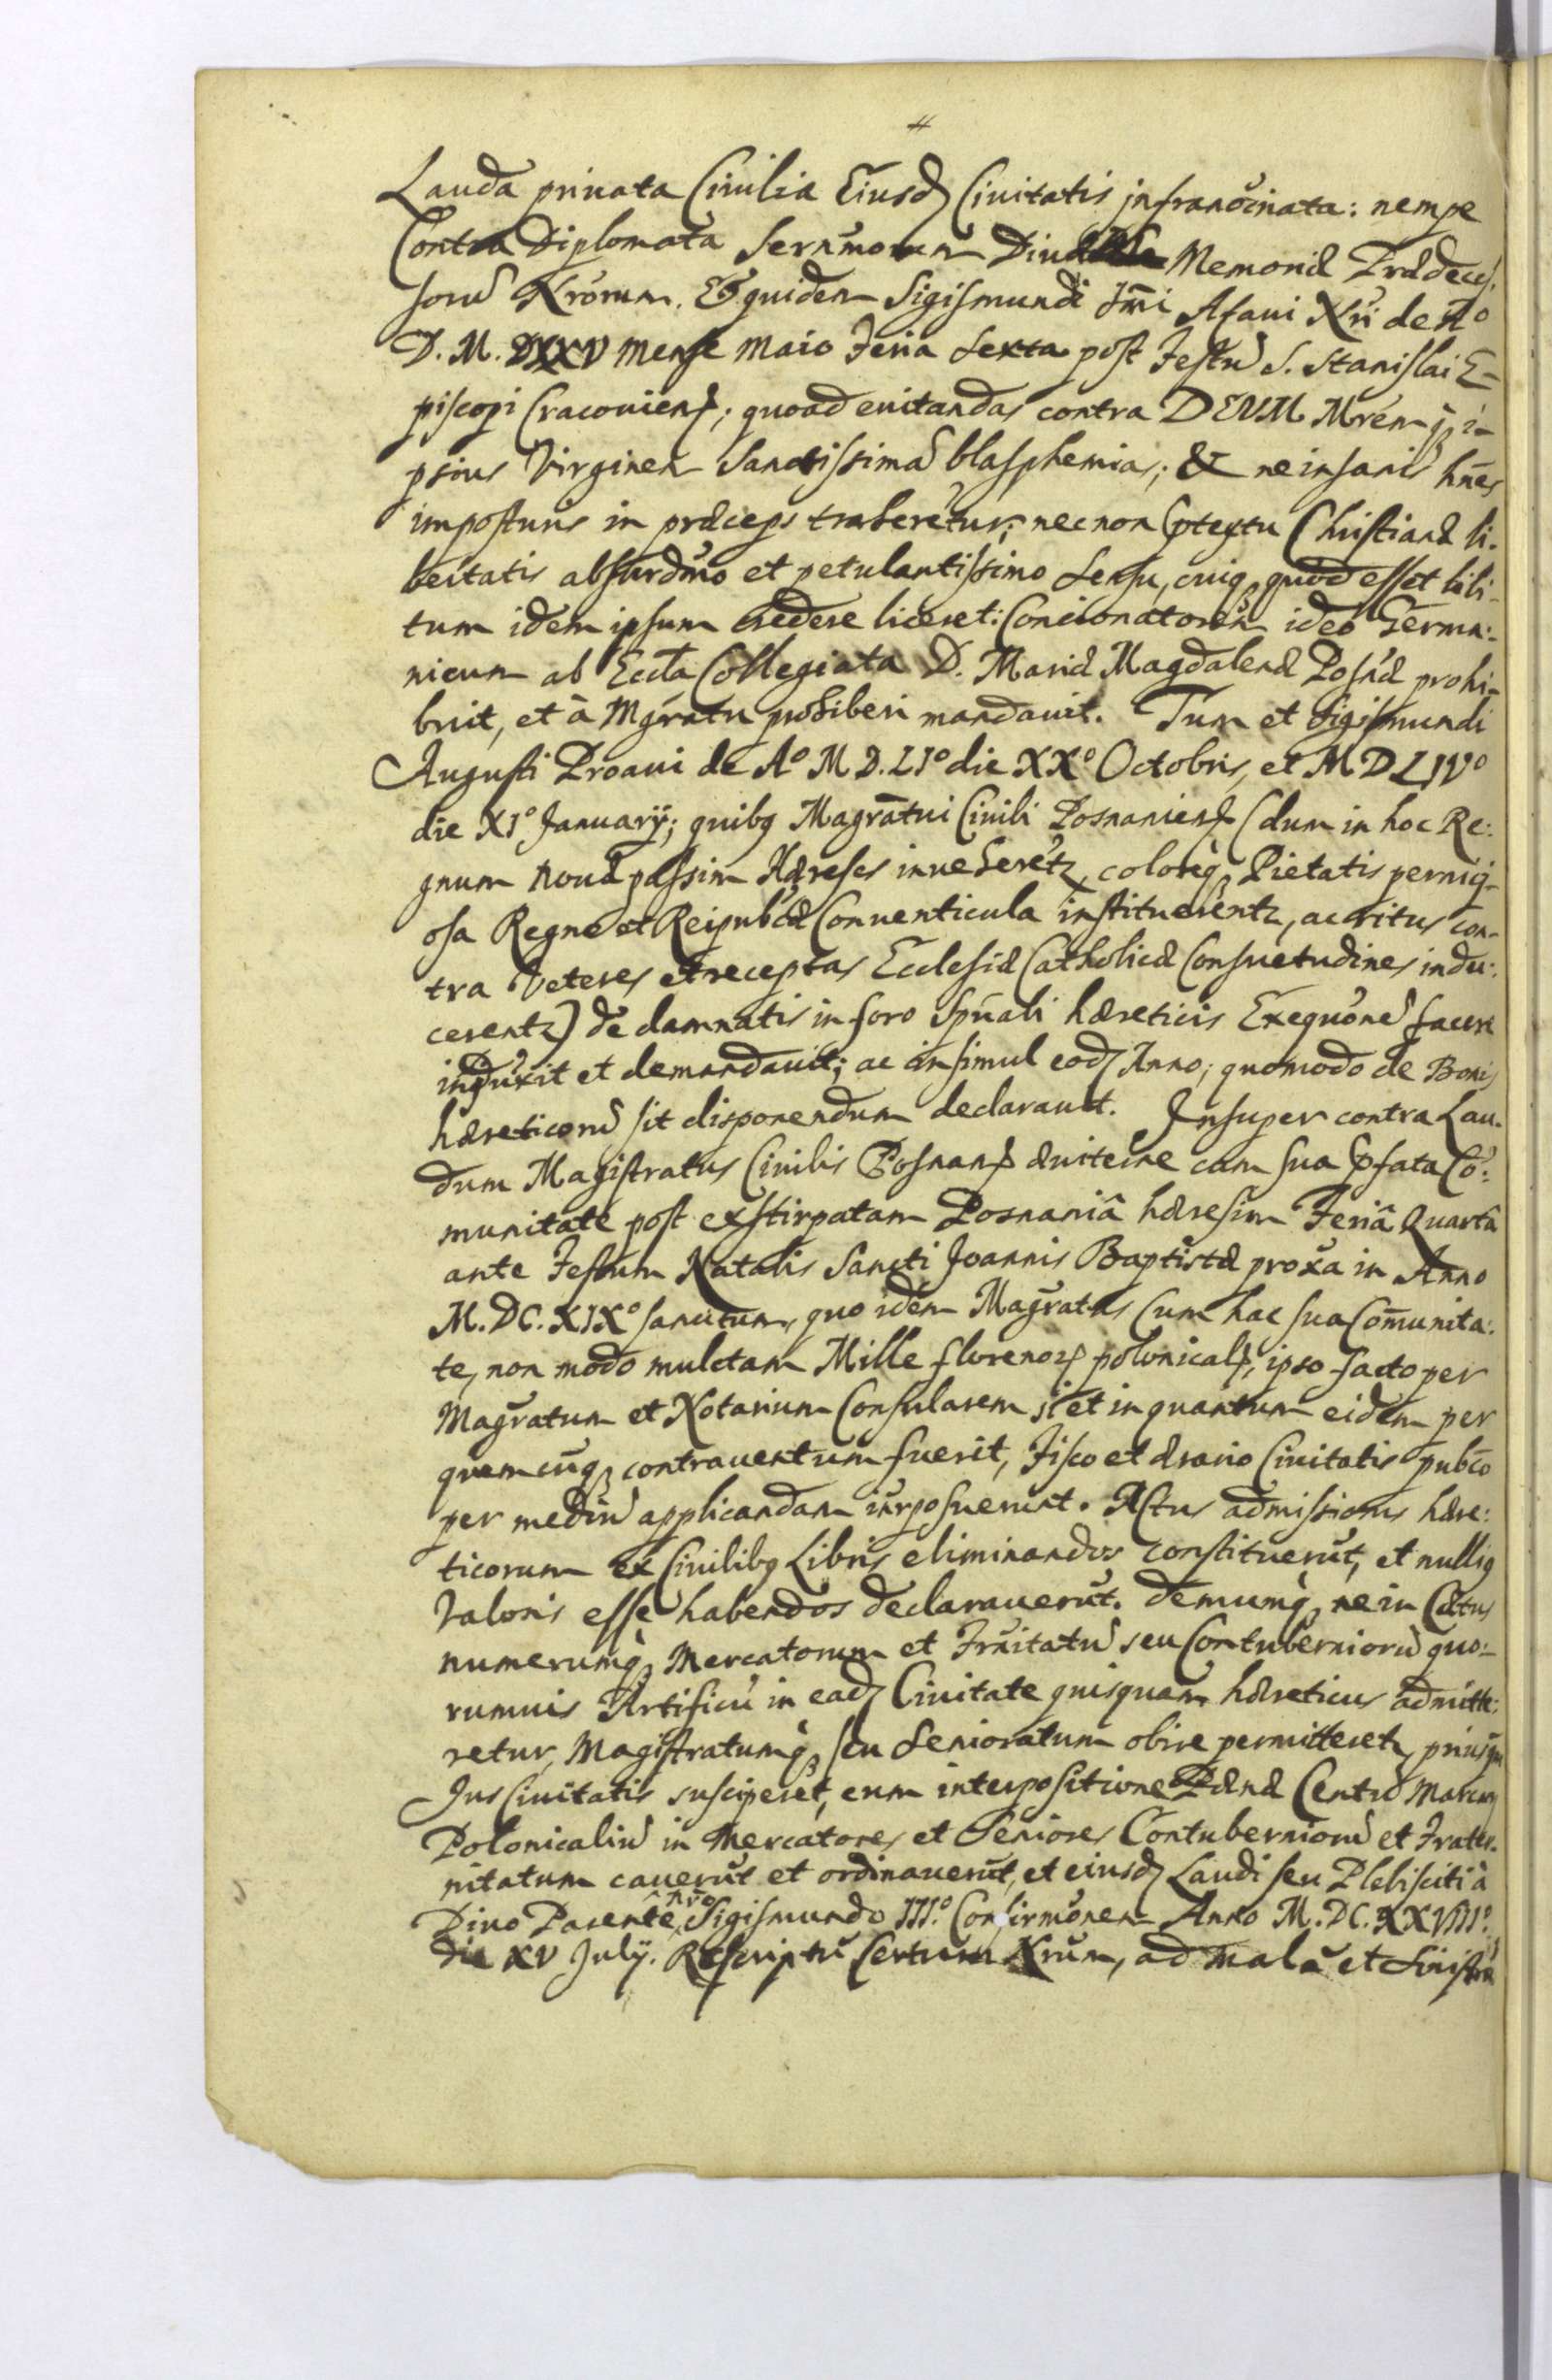 4
Lauda priuata Ciuilia Eiusd Ciuitatis infranoĩnata: nempe
Contra Diplomata Sernmorum Diuae Memoriæ Prædeces,
sorũ Nrõrum. Et quidem Sigismundi Jmi Afaui Nrĩ de Ao
D. M. DXXV mense Maio Feria Sexta post Festũ S. Stanislai E-
piscopi Cracouiens; quoad euitandas contra DEUM Mrem q i-
psius Virginem Sanctissimã blasphemias; & ne insanis hñes
imposturis in præceps traheretur; necnon Ptextu Christianæ li-
bertatis absurdmo et petulantissimo Sensu, cuiq quod esset libi-
tum idem ipsum credere liceret: Concionatorem ideo Germa:
nicum ab Eccla Collegiata D. Mariæ Magdalenæ Posnæ prohi-
buit, et à Mgratu prohiberi mandauit. Tum et Sigismundi
Augusti Proaui de Ao M D. LIo die XXo Octobris, et M D LIVo
die XIo January; quibq Magratui Ciuili Posnaniens (dum in hoc Re:
gnum nouæ passim Hæreses inueheretz, coloreq Pietatis pernici-
osa Regno et Reipubcæ Conuenticula instituerentz, ac ritus con-
tra Veteres et receptas Ecclesiæ Catholicæ Consuetudines indu:
cerentz) de damnatis in foro Spũali hæreticis Exequõnẽ facere
induxit et demandauit; ac insimul eod Anno, quomodo de Bonis
hæreticorũ sit disponendum declarauit. Insuper contra Lau-
dum Magistratus Ciuilis Posnans æuiterne cum sua Pfata Cõ:
munitate post exstirpatam Posnaniâ hæresim Feriâ Quartâ
ante Festum Natalis Sancti Joannis Baptistæ proxa in Anno
M. DC. XIXo sancitum, quo idem Magratus Cum hac sua Cõmunita:
te, non modo mulctam Mille florenor polonical, ipso facto per
Magratum et Notarium Consularem si et in quantum eidem per
quemcũq contrauentum fuerit, Fisco et ærario Ciuitatis pubco
per mediũ applicandam imposuerunt. Actus admissionis hære:
ticorum ex Ciuilibq Libris eliminandos constituerũt, et nulliq
Valoris esse habendos declarauerũt. Demumq ne in Cætus
numerumq Mercatorum et Frnitatũ seu Contuberniorũ quo:
rumuis Artificũ in ead Ciuitate quisquam hæreticus admitte:
retur, Magistratumq seu Senioratum obire permitteretz, priusqu
Jus Ciuitatis susciperet, cum interpositione Pænæ Centũ Marcarũ
Polonicaliũ in Mercatores et Seniores Contuberniorũ et Frater-
nitatum cauerũt et ordinauerũt, et eiusd Laudi seu Plebisciti à
Diuo Parente nro Sigismundo IIIo Confirmõnem Anno M. DC. XXVIIIo
die XV July. Rescriptũ Certum Nrum, ad mala et Sinistrã